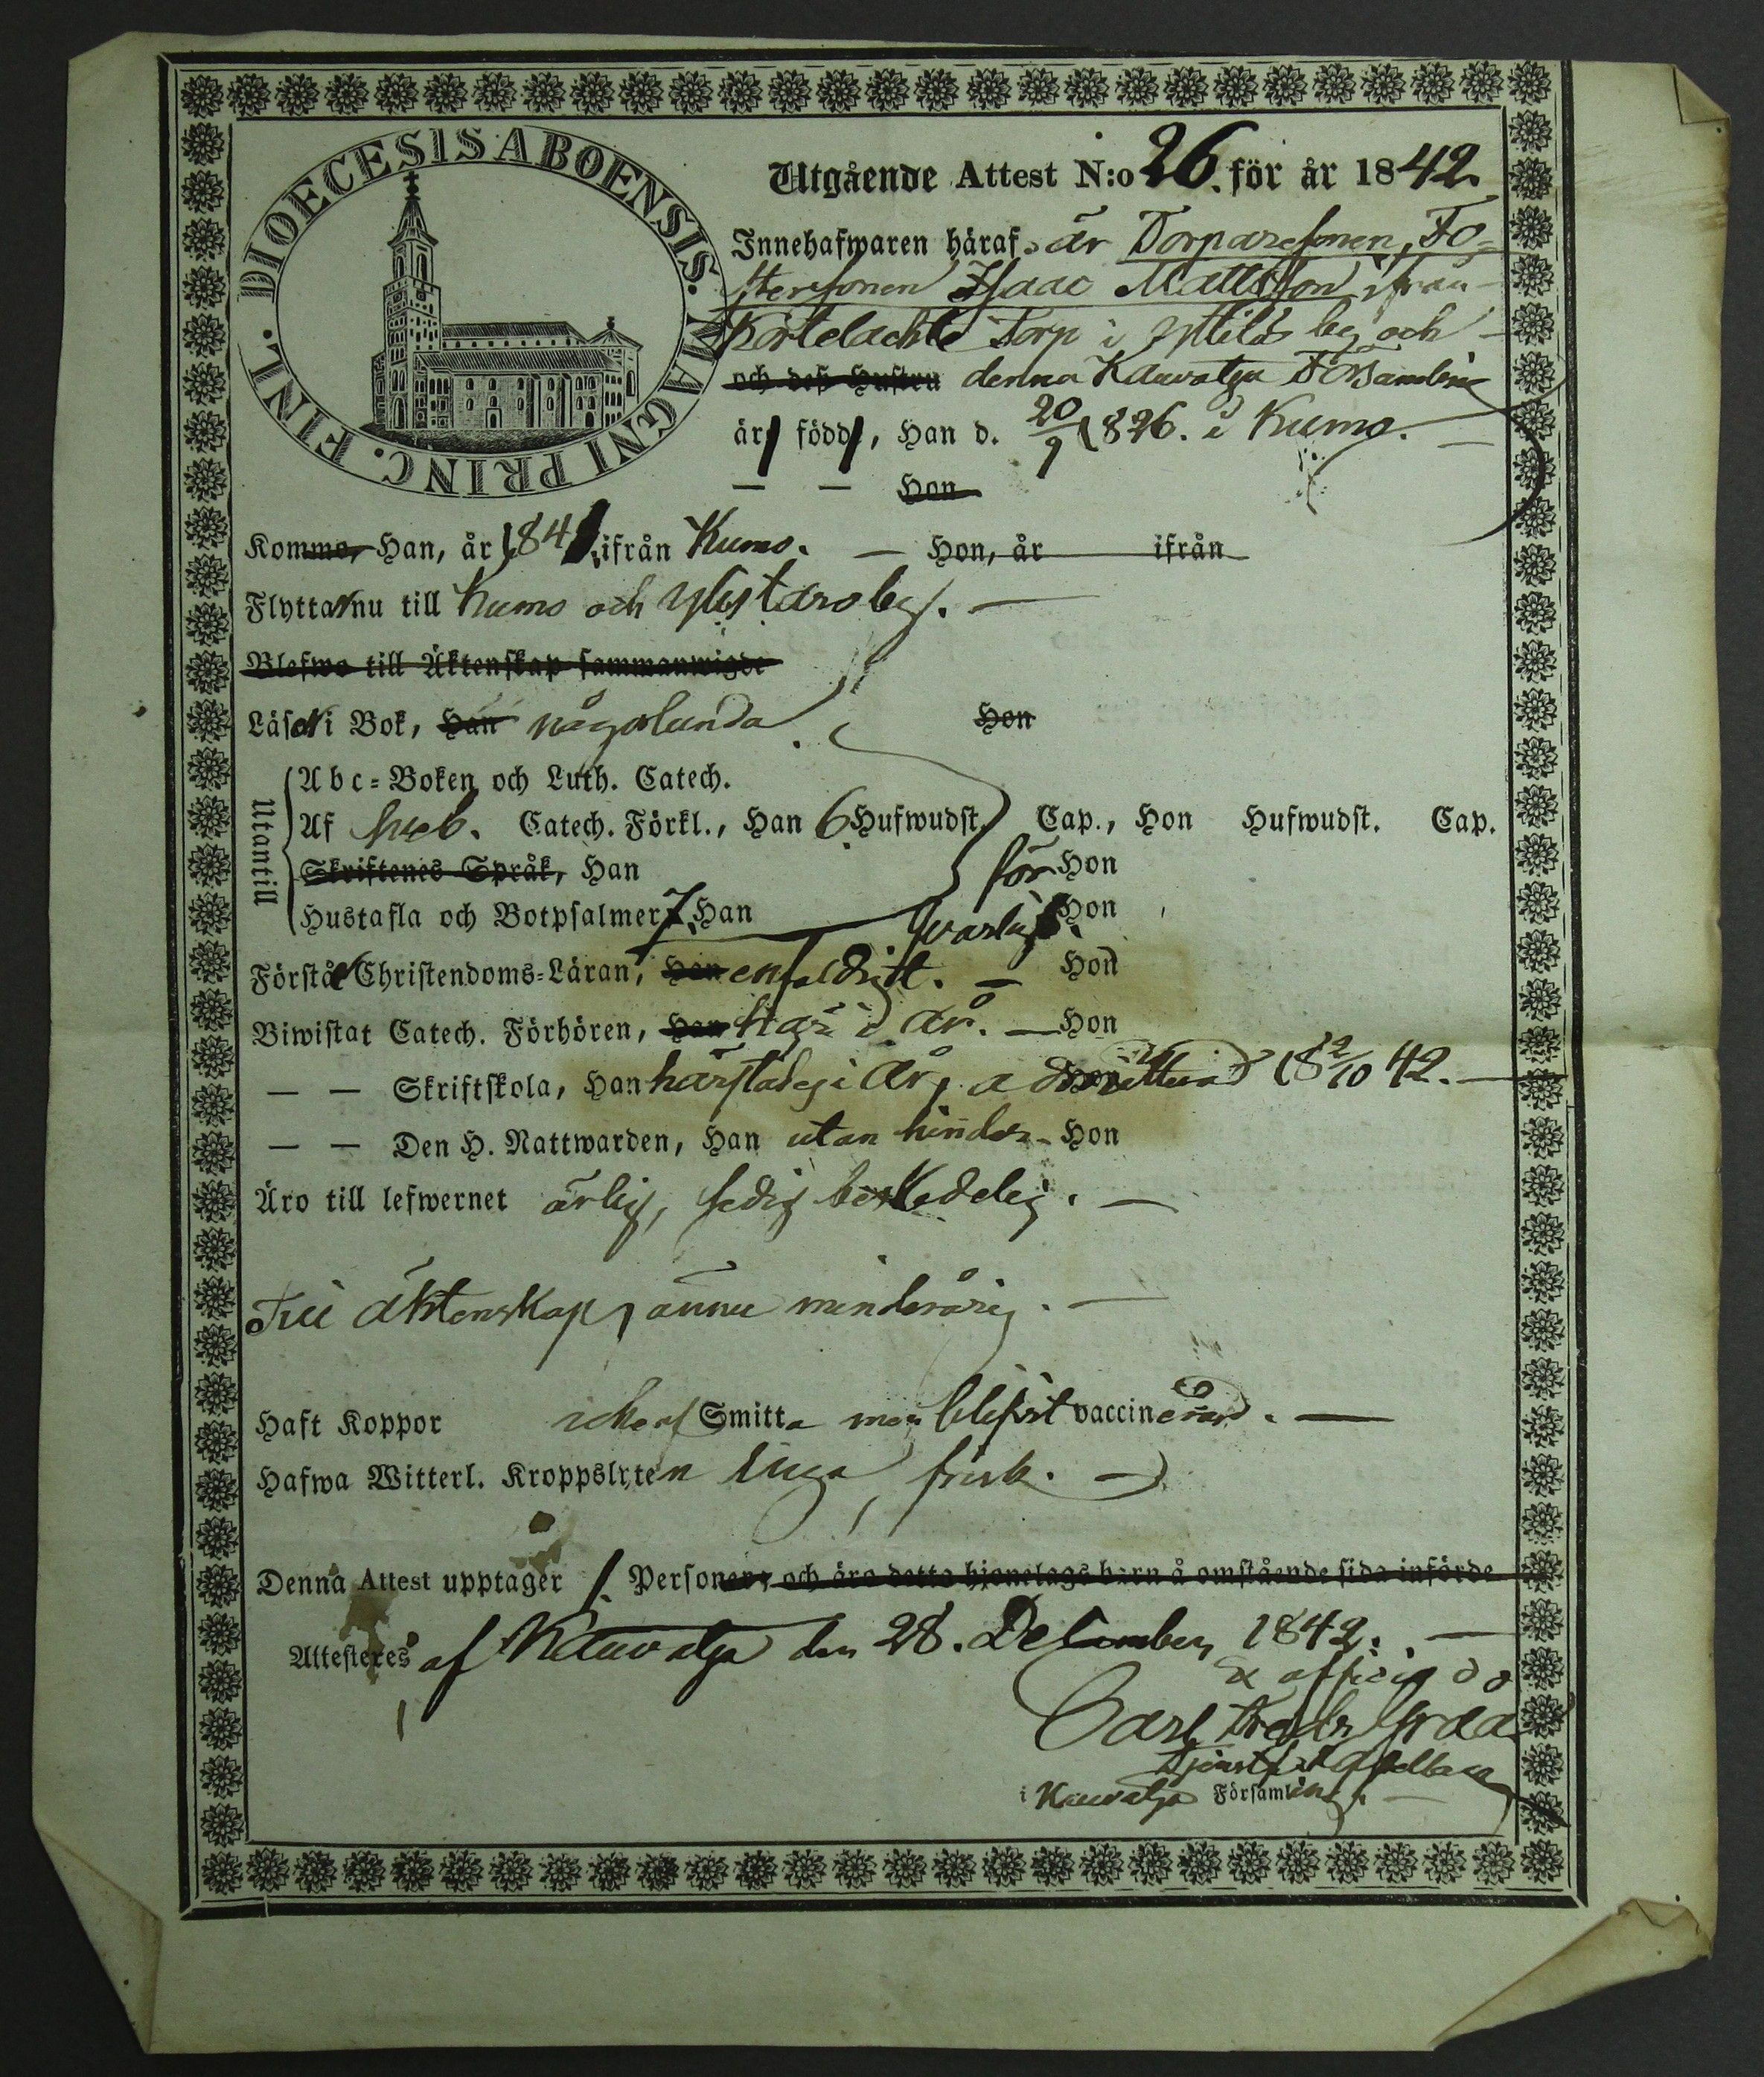 DIOECESIS ABOENSIS. MAGNI PRINC. FINL.
Utgående Attest N:o 26. för år 1842.
Innehafwaren häraf, är Torparesonen, Fo-
stersonen Isaac Mattsson ifrån
Kortelachte Torp i Yttilä by och
och deß Hustru denna Kauvatsa Församling
är född, Han d. 20/9 1826. i Kumo. —
— — Hon
Kommo, Han, år 1841, ifrån Kumo. — Hon, år ifrån
Flyttar nu till Kumo och Ylistaro by. —
Blefwo till Äktenskap sammanwigde
Läser i Bok, Han någorlunda. Hon
Utantill
Abc-Boken och Luth. Catech.
Af Sveb. Catech. Förkl., Han 6 Hufwudst. Cap., Hon Hufwudst. Cap.
Skriftenes Språk, Han för Hon
Hustafla och Botpsalmer 7, Han svarligt. Hon
Förstår Christendoms-Läran, Han enfaldigt. — Hon
Biwistat Catech. Förhören, Han här i år. — Hon
— — Skriftskola, Han härstädes i år, admitterad 18 2/10 42. —
— — Den H. Nattwarden, Han utan hinder — Hon
Äro till lefwernet ärlig, sedig beskedelig. —
Till äktenskap, ännu minderårig. —
Haft Koppor icke af Smitta men blifvit vaccinerad. —
Hafwa Witterl. Kroppslyten inga, frisk. —
Denna Attest upptager 1. Personer, och äro detta hjonelags barn å omstående sida införde
Attesteres af Kauvatsa den 28. December 1842. —
Ex officio
Carl Fredr.
i Kauvatsa Församling. —